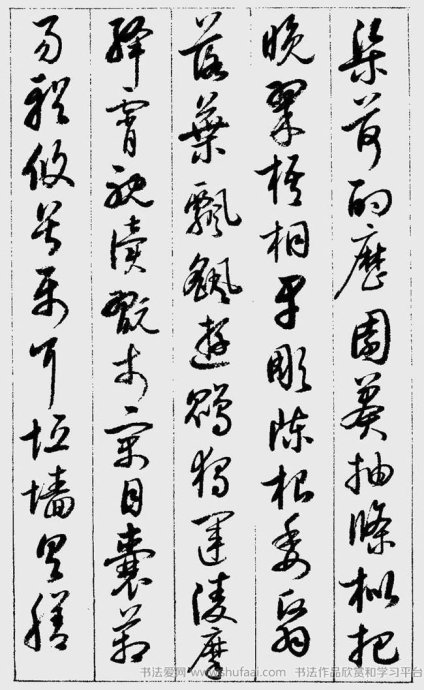 渠荷的歷園莽抽條枇杷
晚翠梧桐早彫陳根委翳
落葉飄颻遊鵾獨運陵摩
絳霄耽讀翫市寓目囊箱
易輶攸畏屬耳垣墻具膳
书法爱网 www.shufaai.com 书法作品欣赏和学习平台